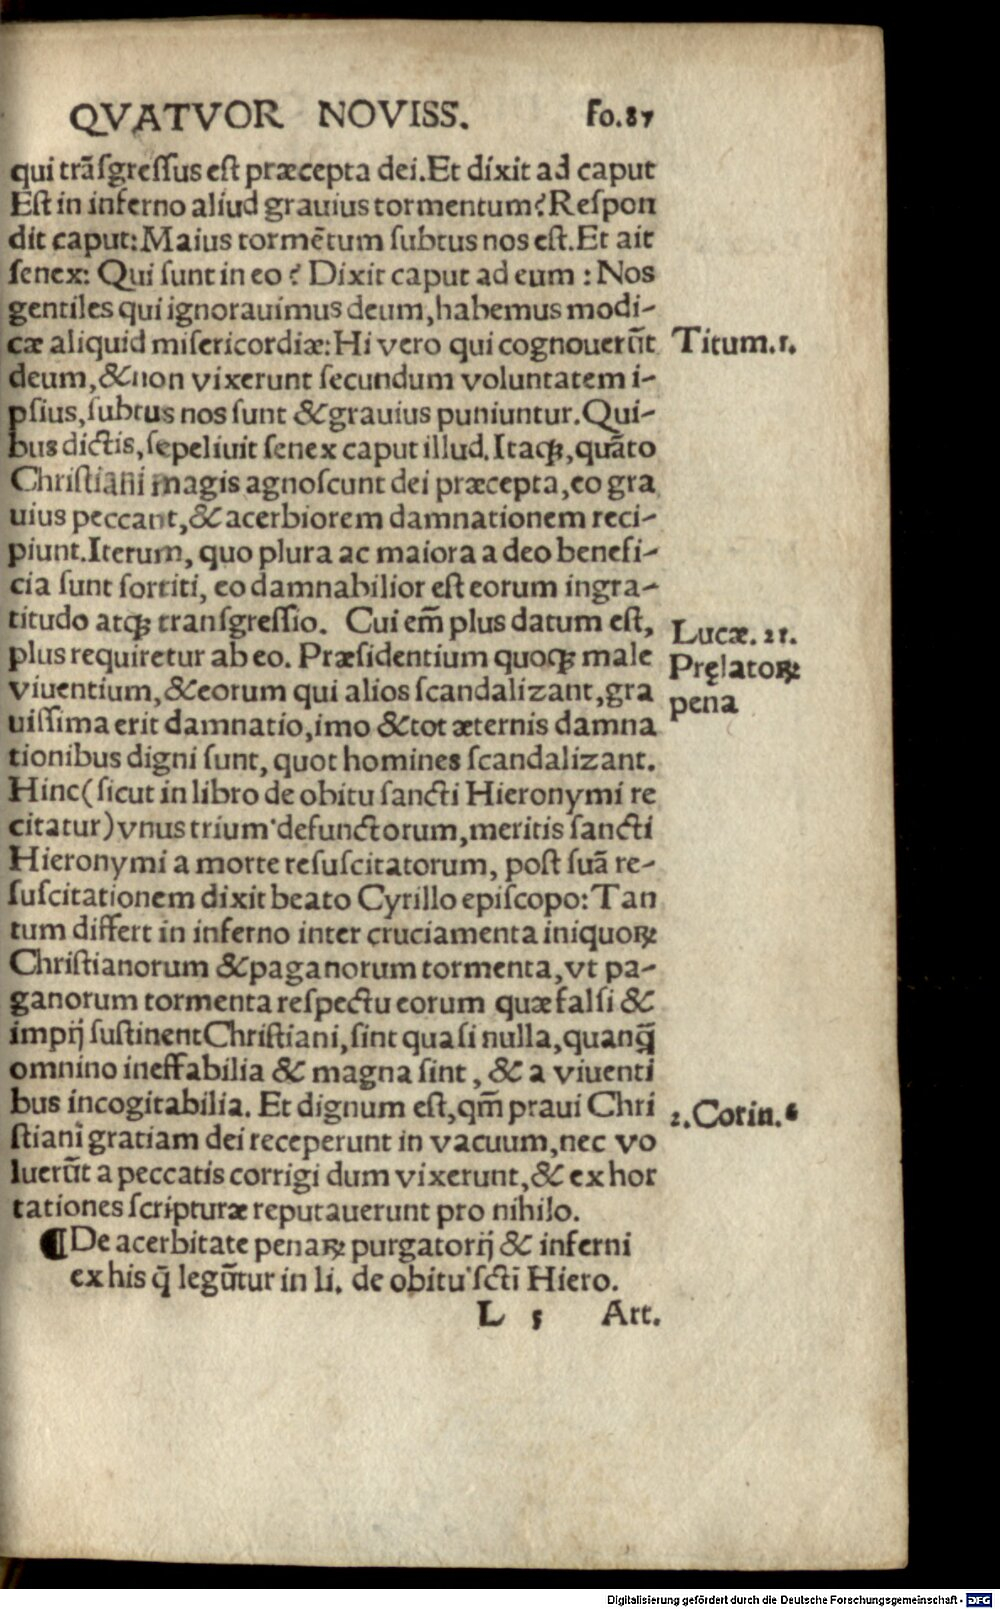 QVATVOR NOVISS. fo.87
qui trãſgreſſus eſt præcepta dei.Et dixit ad caput
Eſt in inferno aliud grauius tormentum?Reſpon
dit caput:Maius tormētum ſubtus nos eſt.Et ait
ſenex: Qui ſunt in eo? Dixit caput ad eum : Nos
gentiles qui ignorauimus deum,habemus modi-
cæ aliquid miſericordiæ:Hi vero qui cognouerūt Titum.1.
deum,&non vixerunt ſecundum voluntatem i-
pſius,ſubtus nos ſunt &grauius puniuntur.Qui-
bus dictis,ſepeliuit ſenex caput illud.Itaqꝫ,quãto
Chriſtiani magis agnoſcunt dei præcepta,eo gra
uius peccant,&acerbiorem damnationem reci-
piunt.Iterum, quo plura ac maiora a deo benefi-
cia ſunt ſortiti, eo damnabilior eſt eorum ingra-
titudo atqꝫ tranſgreſſio. Cui em̄ plus datum eſt, Lucæ.21.
plus requiretur ab eo. Præſidentium quoqꝫ male Pręlatoꝝ
viuentium,&eorum qui alios ſcandalizant,gra pena
uiſſima erit damnatio,imo &tot æternis damna
tionibus digni ſunt, quot homines ſcandalizant.
Hinc(ſicut in libro de obitu ſancti Hieronymi re
citatur)vnus trium defunctorum,meritis ſancti
Hieronymi a morte reſuſcitatorum, poſt ſuã re-
ſuſcitationem dixit beato Cyrillo epiſcopo:Tan
tum differt in inferno inter cruciamenta iniquoꝝ
Chriſtianorum &paganorum tormenta,vt pa-
ganorum tormenta reſpectu eorum quæ falſi &
impij ſuſtinent Chriſtiani,ſint quaſi nulla,quanq̃
omnino ineffabilia & magna ſint, & a viuenti
bus incogitabilia. Et dignum eſt,qm̄ praui Chri 2.Corin.6
ſtiani gratiam dei receperunt in vacuum,nec vo
luerūt a peccatis corrigi dum vixerunt,& exhor
tationes ſcripturæ reputauerunt pro nihilo.
¶De acerbitate penaꝝ purgatorij & inferni
ex his q̄ legūtur in li. de obitu ſcti Hiero.
L 5 Art.
Digitalisierung gefördert durch die Deutsche Forschungsgemeinschaft - DFG